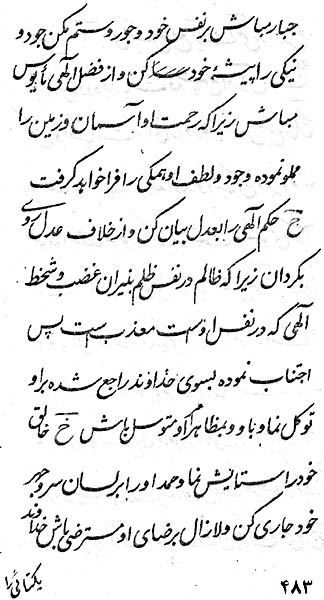 جبار مباش بر نفس خود و جور و ستم مکن جود و
نیکی را پیشهٔ خود کن و از فضل الهی مأیوس
مباش زیرا که رحمت او آسمان و زمین را
مملو نموده وجود و لطف او همگی را فرا خواهد گرفت
خ حکم الهی را بعدل بیان کن و از خلاف عدل روی
بگردان زیرا که ظالم در نفس ظلم بنیران غضب و سخط
الهی که در نفس اوست معذب است پس
اجتناب نموده بسوی خداوند راجع شده بر او
توکل نما و باو و بمظاهر امر او متوسل باش خ خالق
خود را ستایش نما و حمد او را بر لسان سر و جهر
خود جاری کن و لازال برضای او مسترضی باش خداوند
۴۸۳
یکتائی را